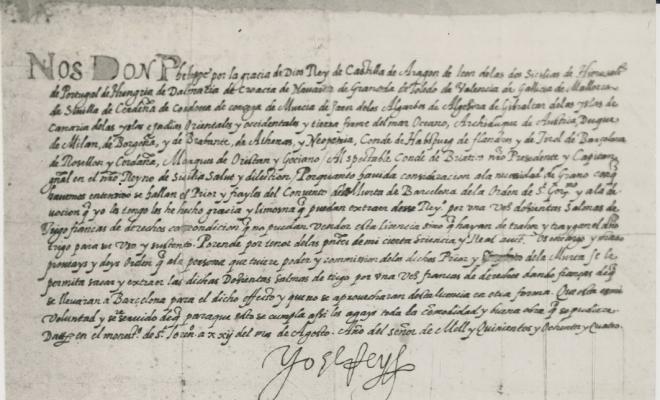 NOS DON Phelippe por la gracia de Dios Rey de Castilla de Aragon de leon delas dos Sicilias de Hierusalem
de Portugal de Hungria de Dalmatia de Croacia de Navarra de Granada de Toledo de Valencia de Gallicia de Mallorca
de Sevilla de Cerdeña de Cordoua de corcega de Murcia de Jaen delos Algarbes de Algezira de Gibraltar delas yslas de
Canaria delas yslas e Jndias Orientales y occidentales y tierra firme del mar Oceano, Archiduque de Austria Duque
de Milan, de Borgoña, y de Brabante, de Athenas, y Neopatria, Conde de Habspurg de flandes y de Tirol de Barcelona
de Rosellon y Cerdaña, Marques de Oristan y Gociano: Al spectable Conde de nro Presidente y Capitan
gñal en el nro Reyno de Sicilia Salut y dilection. Porquanto havida consideracion ala necesidad de grano conq
havemos entendido se hallan el Prior y frayles del Convento de Murta de Barcelona dela Orden de St. y ala de
uocion q yo la tengo les he hecho gracia y limosna q puedan extraer desse Rey por vna vez dozientas Salmas de
trigo francas de derechos con condicion q no puedan vender esta licencia sino q hayan de traher y traygan el dho
trigo para su vso y sustento. Porende por tenor delas pñtes de mi cierta sciencia y Real auct. os encargo y mando
proveays y deys orden q ala persona que tuviere poder y commission delos dichos Prior y dela Murta se le
permita sacar y extraer las dichas Dozientas salmas de trigo por vna vez francas de derechos dando fianças deq
se llevaran a Barcelona para el dicho effecto y que no se aprovecharan desta licencia en otra forma. Que esta es mi
voluntad y se servido deq paraque esto se cumpla assi les agays toda la comodidad y buena obra q se pudiere
Datt. en el monest. de S. Loren. a xxij del mes de Agosto. Año del señor de Mill y Quinientos y Ochenta y Quatro.
Yo el Rey